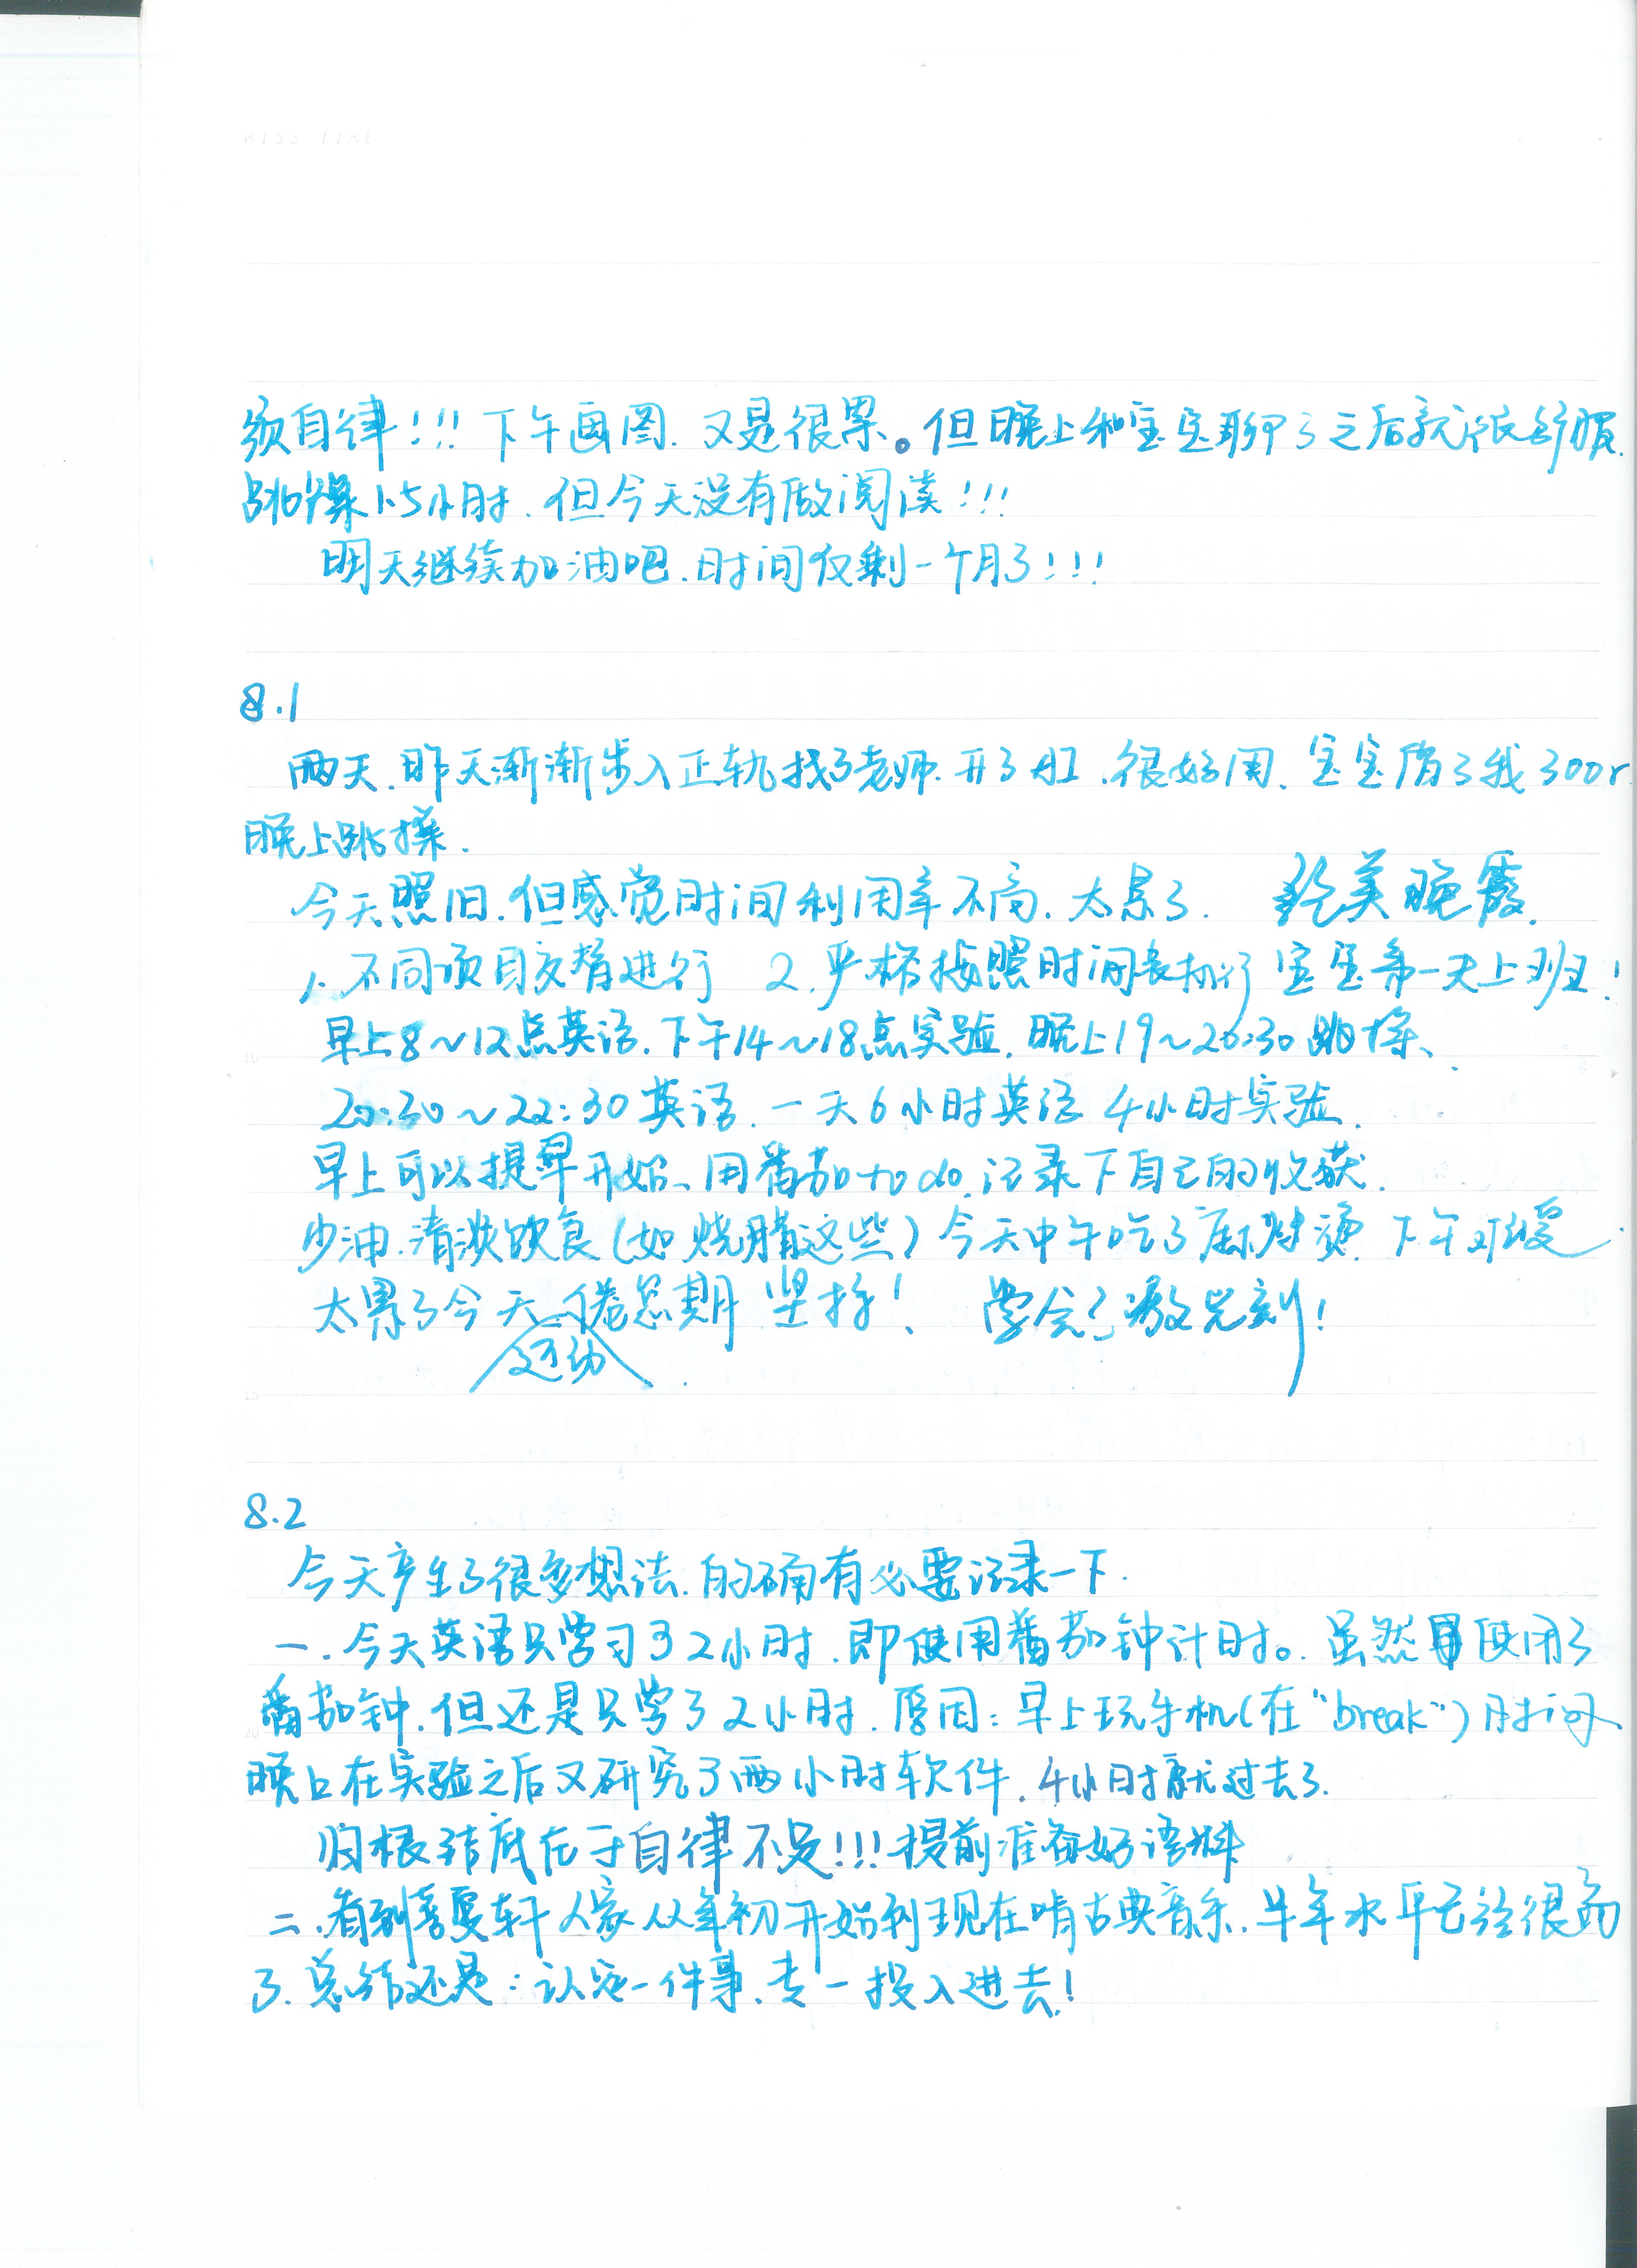 须自律!!! 下午画图. 又是很累。但晚上和宝宝聊了之后就很舒服.
跳操1.5小时. 但今天没有做阅读!!!
明天继续加油吧. 时间仅剩一个月了!!!
8.1
两天. 昨天渐渐步入正轨找了老师. 开了 很好用. 宝宝 了我300r
晚上跳操.
今天照旧. 但感觉时间利用率不高. 太累了. 绝美晚霞.
1. 不同项目交替进行 2. 严格按照时间表执行 宝宝第一天上班!
早上8~12点英语. 下午14~18点实验. 晚上19~20:30跳操、
20:30~22:30英语. 一天6小时英语 4小时实验.
早上可以提早开始、用番茄to do. 记录下自己的收获.
少油. 清淡饮食(如烧腊这些) 今天中午吃了麻辣烫. 下午难受
太累了今天. 倦怠期 坚持! 学会了激光刻!
运动
8.2
今天产生了很多想法. 的确有必要记录一下.
一. 今天英语只学习了2小时. 即使用番茄钟计时。虽然使用了
番茄钟. 但还是只学了2小时. 原因: 早上玩手机(在"break")时间、
晚上在实验之后又研究了两小时软件. 4小时就过去了.
归根结底在于自律不足!!! 提前准备好语料
二. 看到 轩 人家从年初开始到现在啃古典音乐. 半年水平已经很高
了. 总结还是: 认定一件事、专一投入进去!